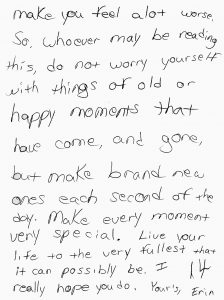 make you feel alot worse.
So, whoever may be reading
this, do not worry yourself
with things of old or
happy moments that
have come, and gone,
but make brand new
ones each second of the
day. Make every moment
very special. Live your
life to the very fullest that
it can possibly be. I
really hope you do. Your's, Erin 14